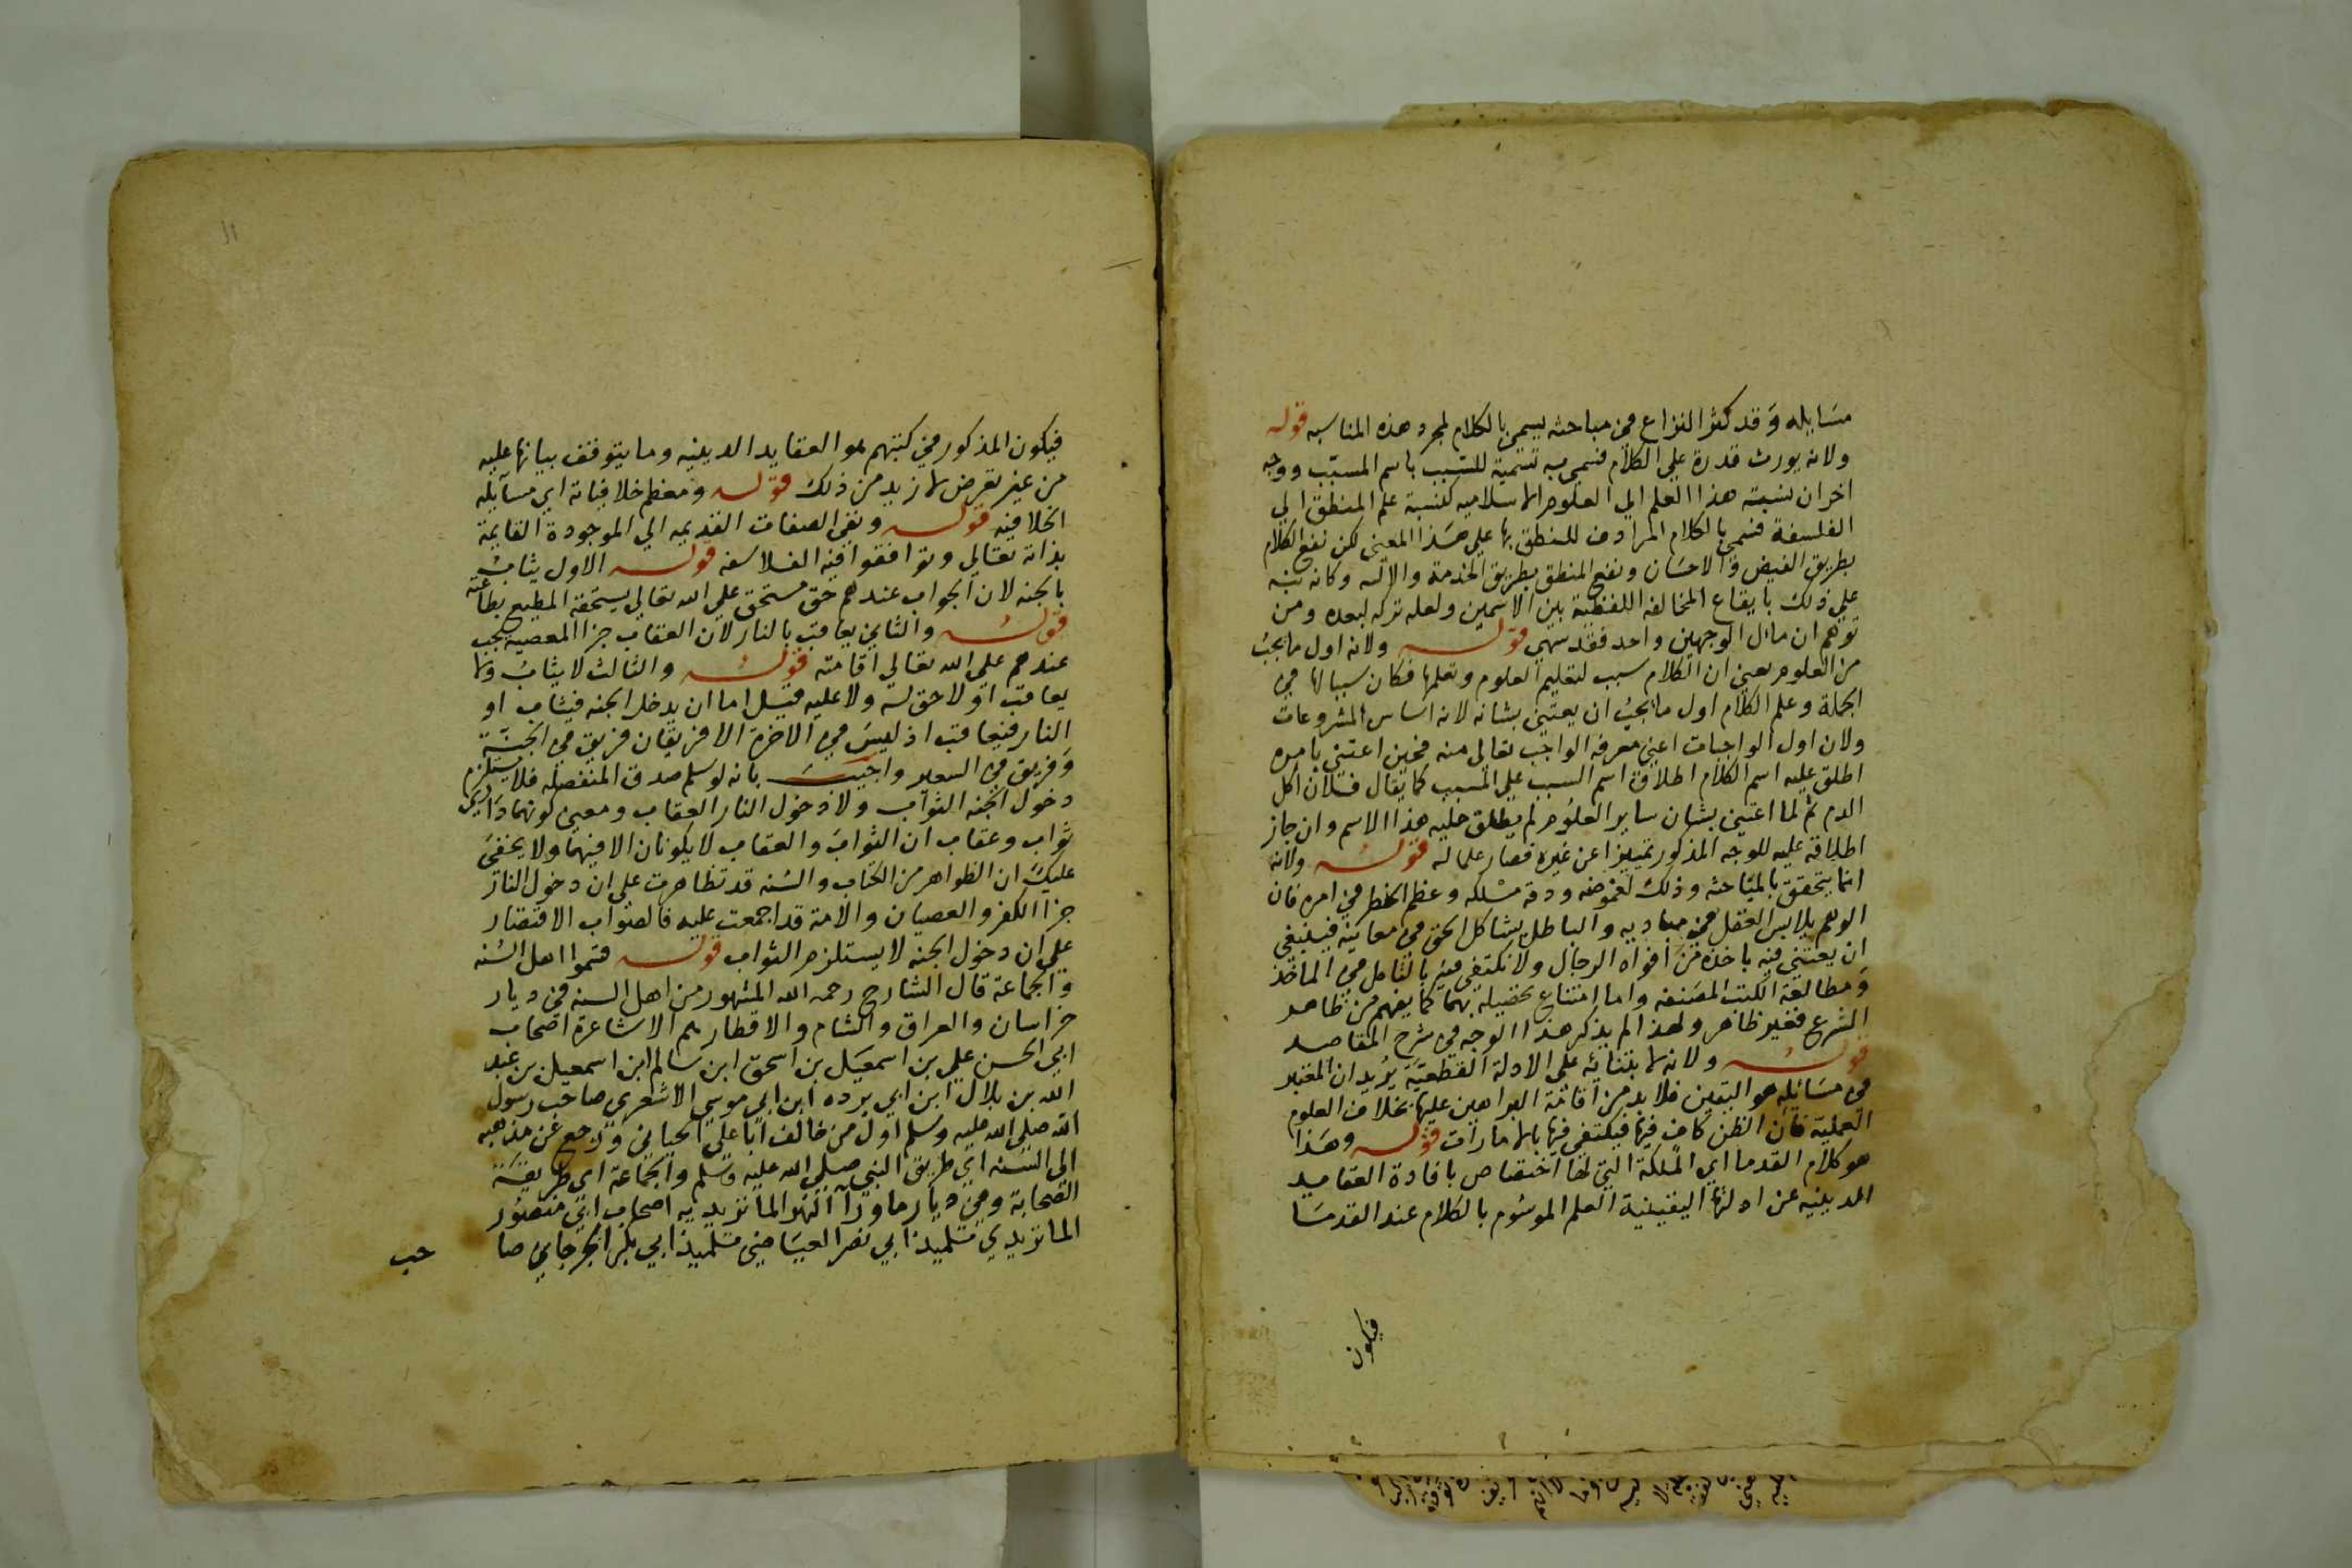 مسايله وقد كثر النزاع في مباحثه يسمي بالكلام لمجرد هذه المناسبه قوله
ولانه يورث قدرة علي الكلام فسمي به تسمية للسبب باسم المسبب ووجه
اخر ان نسبة هذا العلم الي العلوم الاسلاميه كنسبة علم المنطق الي
الفلسفة فسمي بالكلام المرادف للمنطق بها علي هذا المعني لكن نفع الكلام
بطريق الفيض والاحسان ونفع المنطق بطريق الخدمة والاله وكانه نبه
علي ذلك بايقاع المخالفه اللفظية بين الاسمين ولعله تركه لبعده ومن
توهم ان مآل الوجهين واحد فقد سهي قوله ولانه اول ما يجب
من العلوم يعني ان الكلام سبب لتعليم العلوم وتعلمها فكان سببا لها في
الجملة وعلم الكلام اول ما يجب ان يعتني بشانه لانه اساس المشروعات
ولان اول الواجبات اعني معرفه الواجب تعالي منه فحين اعتني بامره
اطلق عليه اسم الكلام اطلاق اسم السبب علي المسبب كما يقال فلان اكل
الدم ثم لما اعتني بشان ساير العلوم لم يطلق عليه هذا الاسم وان جاز
اطلاقه عليه للوجه المذكور تمييزا عن غيره فصار علما له قوله ولانه
انما يتحقق بالمباحثه وذلك لغموضه ودقة مسلكه وعظم الخطر في امره فان
الوهم يلابس العقل في مباديه والباطل يشاكل الحق في معانيه فينبغي
ان يعتني فيه باخذه من افواه الرجال ولا نكتفي فيه بالتامل في الماخذ
ومطالعة الكتب المصنفه واما امتناع تحصيله بهما كما يفهم من ظاهر
الشرع فغير ظاهر ولهذا لم يذكر هذا الوجه في شرح المقاصد
قوله ولانه لابتنائه علي الادلة القطعية يريد ان المعتبر
في مسائله هو اليقين فلا بد من اقامة البراهين عليها بخلاف العلوم
العملية فان الظن كاف فيها فيكتفي فيها بالامارات قوله وهذا
هو كلام القدما اي الملكة التي لها اختصاص بافادة العقايد
الدينيه عن ادلتها اليقينية العلم الموسوم بالكلام عند القدما
فيكون
١١
فيكون المذكور في كتبهم هو العقايد الدينيه وما يتوقف بيانها عليه
من غير تعرض لازيد من ذلك قوله ومعظم خلافياته اي مسآيله
الخلافيه قوله ونفي الصفات القديمه الي الموجودة القايمة
بذاته تعالي وتوافقوا فيه الفلاسفه قوله الاول يثاب
بالجنه لان الجواب عندهم حق مستحق علي الله تعالي يستحقه المطيع بطاعته
قوله والثاني يعاقب بالنار لان العقاب جزا المعصيه يجب
عندهم علي الله تعالي اقامته قوله والثالث لا يثاب ولا
يعاقب او لا حق له ولا عليه قيل اما ان يدخل الجنه فيثاب او
النار فيعاقب اذ ليس في الاخرة الا فريقان فريق في الجنة
وفريق في السعير واجيب بانه لو سلم صدق المنفصله فلا يستلزم
دخول الجنه الثواب ولا دخول النار العقاب ومعني كونهما داري
ثواب وعقاب ان الثواب والعقاب لا يكونان الا فيهما ولا يخفي
عليك ان الظواهر من الكتاب والسنه قد تظاهرت علي ان دخول النار
جزا الكفر والعصيان والامة قد اجمعت عليه فالصواب الاقتصار
علي ان دخول الجنه لا يستلزم الثواب قوله فتموا اهل السنه
والجماعة قال الشارح رحمه الله المشهور من اهل السنه في ديار
خراسان والعراق والشام والاقطار هم الاشاعرة اصحاب
ابي الحسن علي بن اسمعيل بن اسحق ابن سالم ابن اسمعيل بن عبد
الله بن بلال ابن ابي برده ابن ابي موسي الاشعري صاحب رسول
الله صلي الله عليه وسلم اول من خالف ابا علي الجبايي ورجع عن مذهبه
الي السنه اي طريق النبي صلي الله عليه وسلم والجماعة اي طريقة
الصحابة وفي ديار ماورآ النهر الماتريديه اصحاب ابي منصور
الماتريدي تلميذ ابي نصر العياضي تلميذ ابي بكر الجرجاني صا
حب